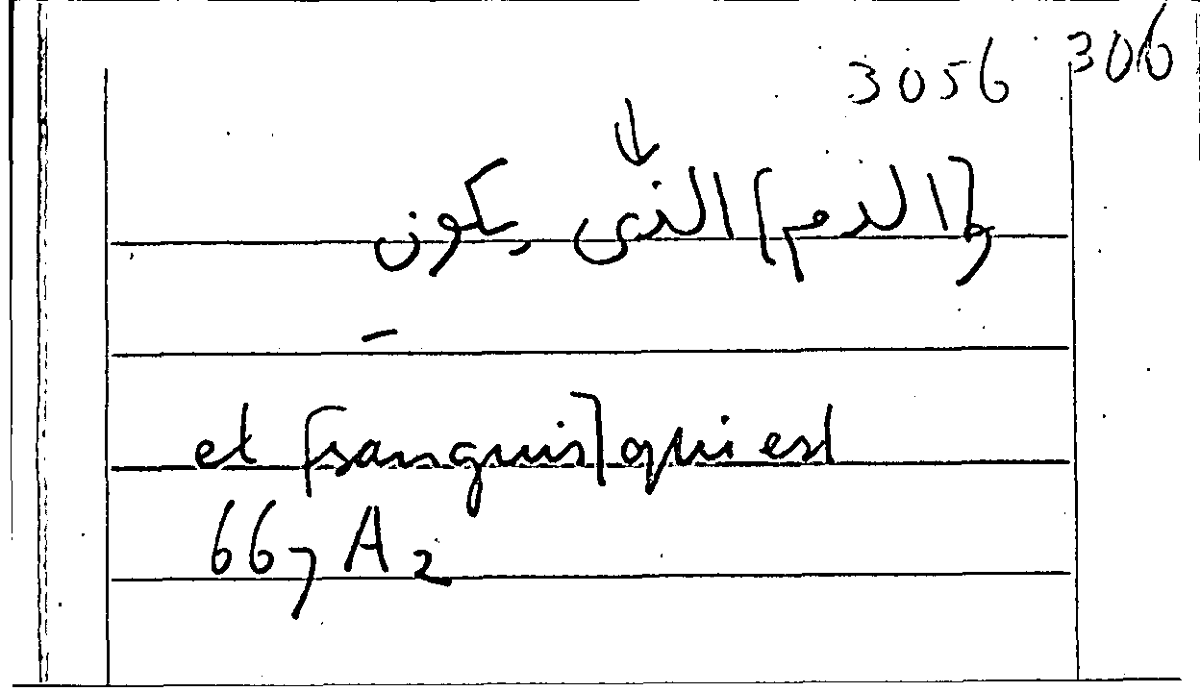 306
3056
و[الدم] الذى يكون
et [sanguis] qui est
667 A 2